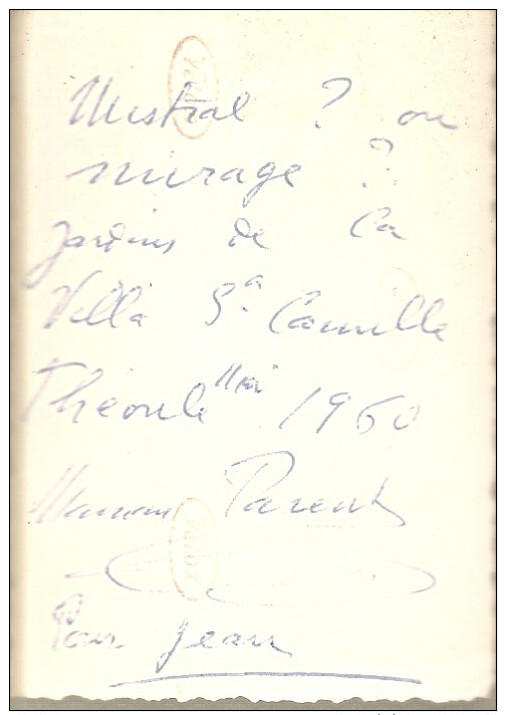 Mistral ? ou
mirage ??
Jardins de la
Villa Sª. Camilla
Théoule Mai 1960
Maman Parent
Pour Jean